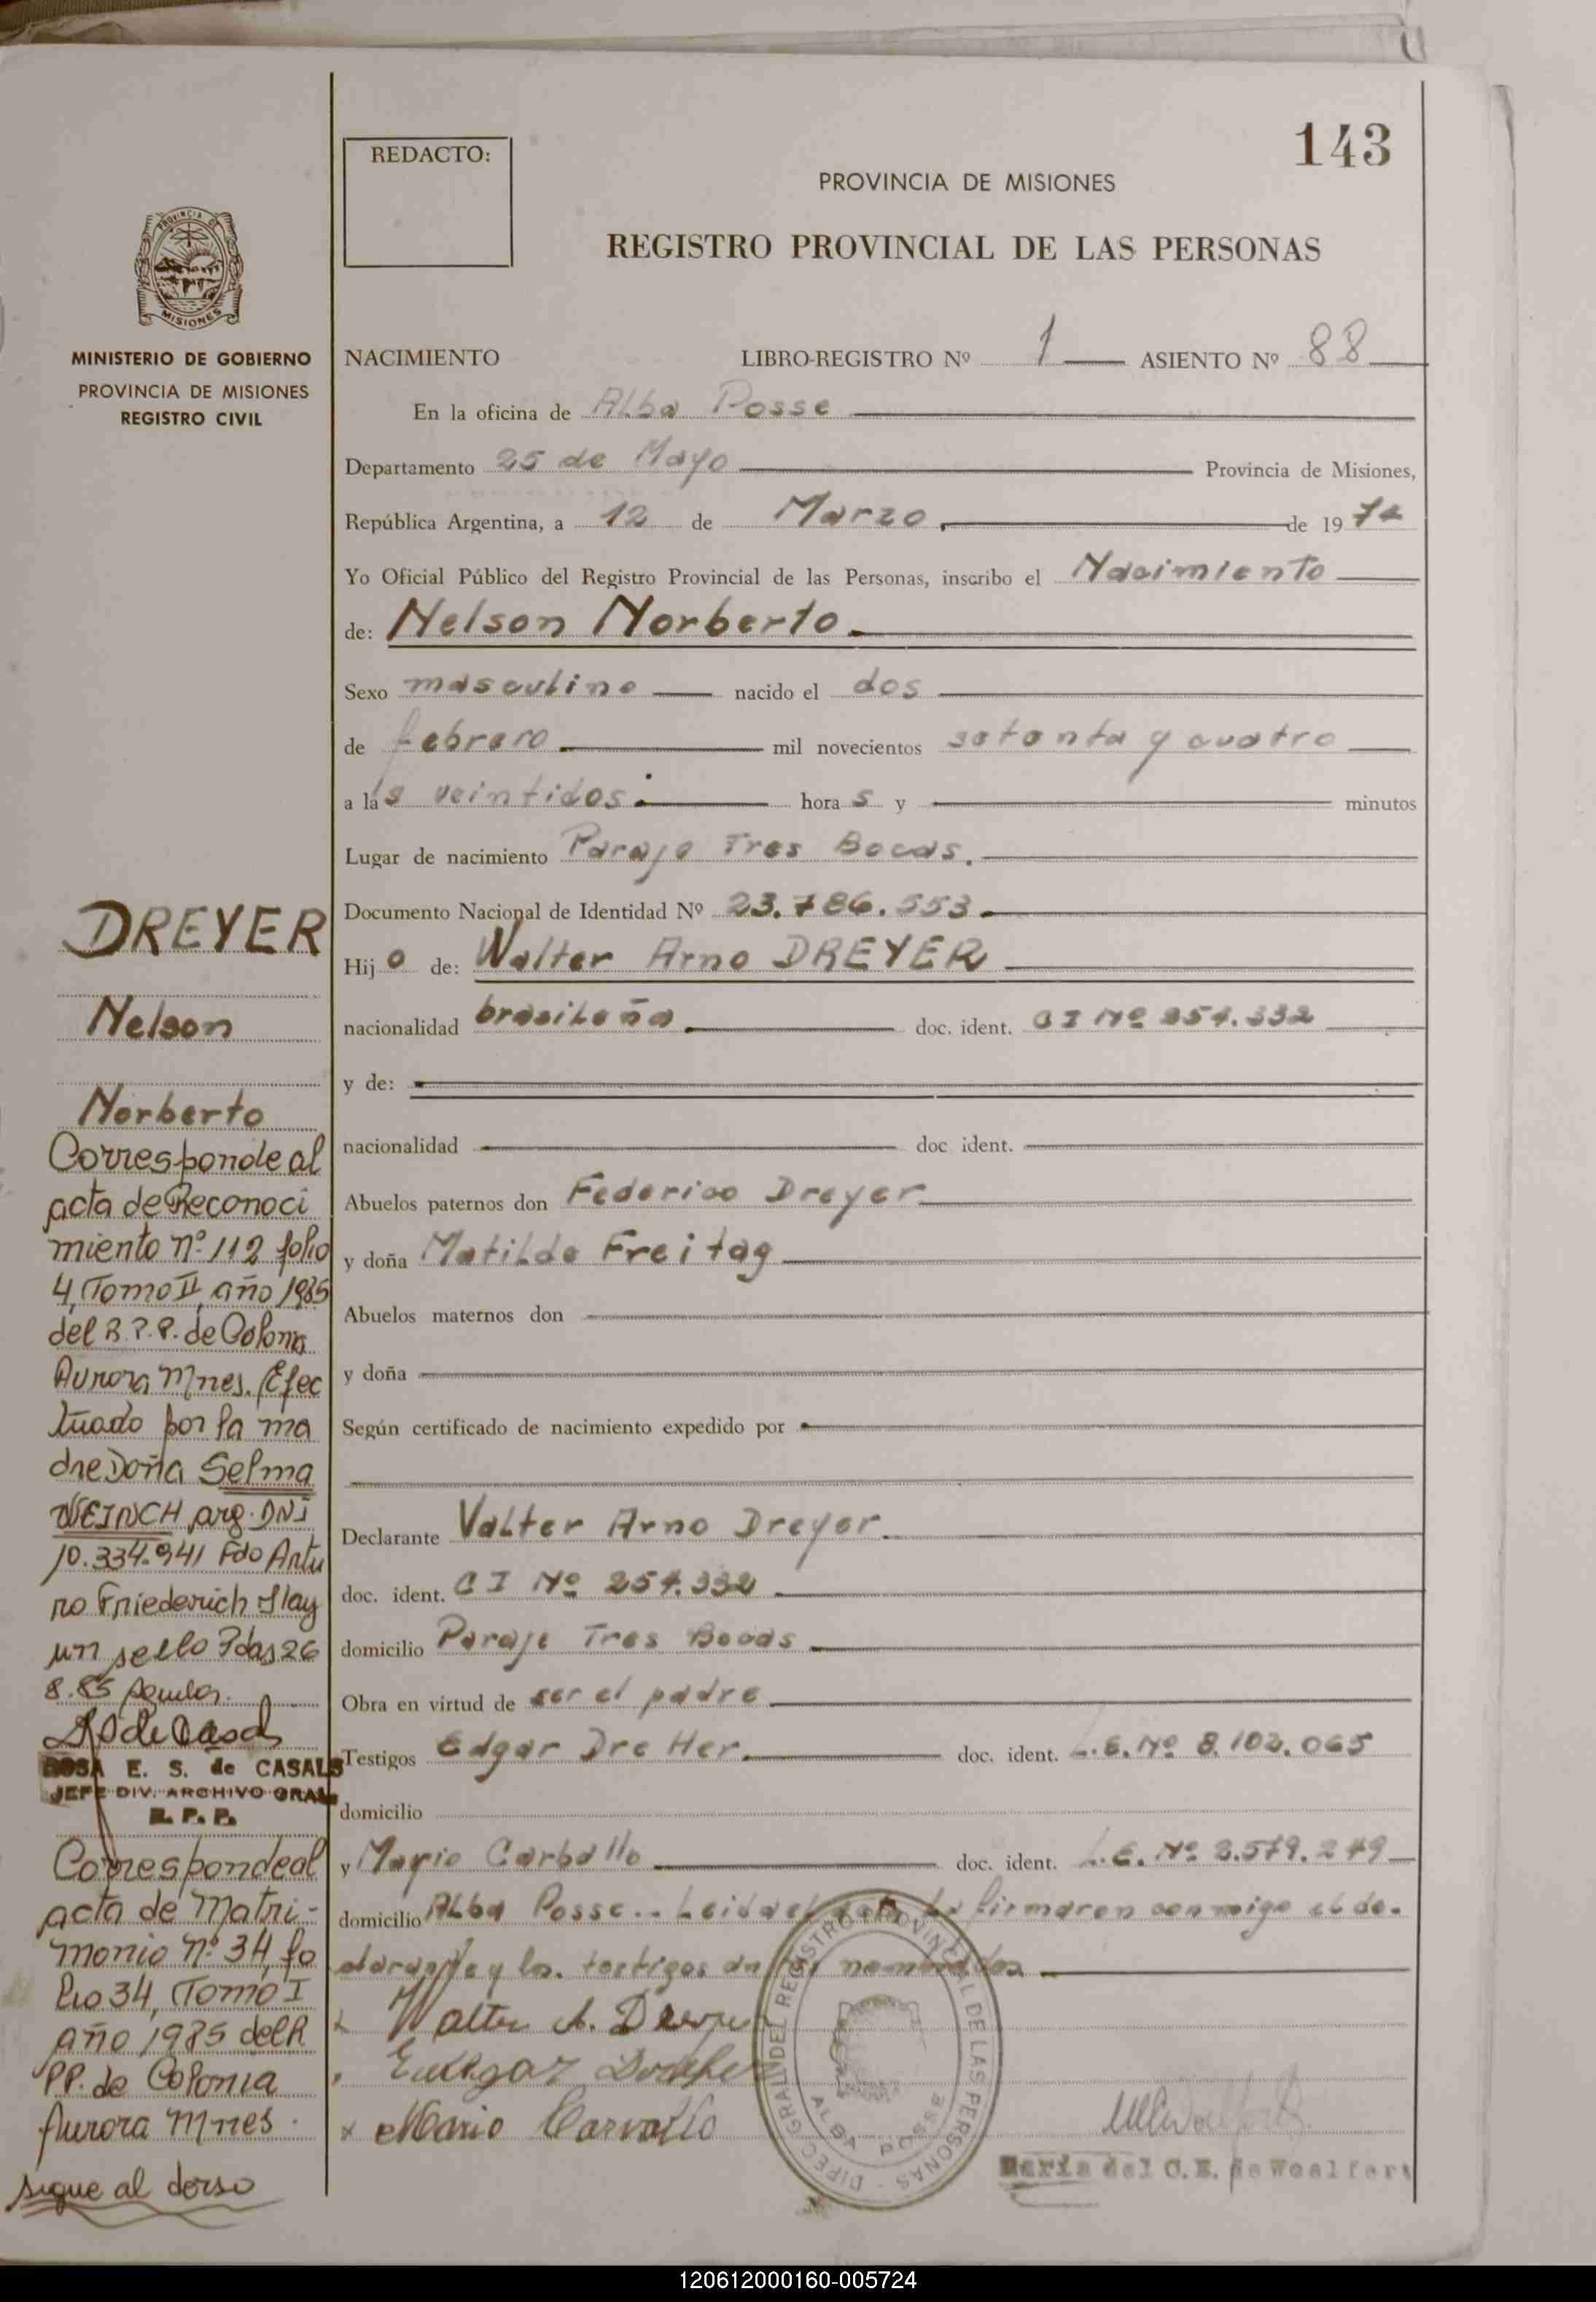 143
REDACTO:
PROVINCIA DE MISIONES
REGISTRO PROVINCIAL DE LAS PERSONAS
PROVINCIA DE
MISIONES
MINISTERIO DE GOBIERNO
PROVINCIA DE MISIONES
REGISTRO CIVIL
NACIMIENTO LIBRO-REGISTRO Nº 1 ASIENTO Nº 88
En la oficina de Alba Posse
Departamento 25 de Mayo Provincia de Misiones,
República Argentina, a 12 de Marzo de 1974
Yo Oficial Público del Registro Provincial de las Personas, inscribo el Nacimiento
de: Nelson Norberto
Sexo masculino nacido el dos
de febrero mil novecientos setenta y cuatro
a las veintidos hora s y minutos
Lugar de nacimiento Paraje Tres Bocas.
Documento Nacional de Identidad Nº 23.786.553
Hijo de: Walter Arno DREYER
nacionalidad brasileña doc. ident. CI Nº 254.332
y de:
nacionalidad doc ident.
Abuelos paternos don Federico Dreyer
y doña Matilde Freitag
Abuelos maternos don
y doña
Según certificado de nacimiento expedido por
Declarante Valter Arno Dreyer
doc. ident. CI Nº 254.332
domicilio Paraje Tres Bocas
Obra en virtud de ser el padre
Testigos Edgar Dre Her doc. ident. L.E. Nº 8.102.065
domicilio
y Mario Carballo doc. ident. L.E. Nº 3.579.249
domicilio Alba Posse.. Leida el acta la firmaron conmigo el de-
clarante y los testigos antes nombrados
Walter A. Dreyer
Mario Carvallo
DIREC GRAL DEL REGISTRO PROVINCIAL DE LAS PERSONAS
ALBA POSSE
María del C. E. de Woalfert
DREYER
Nelson
Norberto
Corresponde al
acta de Reconoci
miento nº 112 folio
4, Tomo II, año 1985
del R.P.P. de Colonia
Aurora Mnes. Efec
tuado por la ma
dre Doña Selma
WEINCH, arg. DNI
10.334.941 Fdo Artu
ro Friederich Hay
un sello Pdas 26
8.85
ROSA E. S. de CASALS
JEFE DIV. ARCHIVO GRAL
R. P. P.
Corresponde al
acta de Matri-
monio nº 34, fo
lio 34, Tomo I
año 1985 del R
PP. de Colonia
Aurora Mnes.
sigue al dorso
120612000160-005724